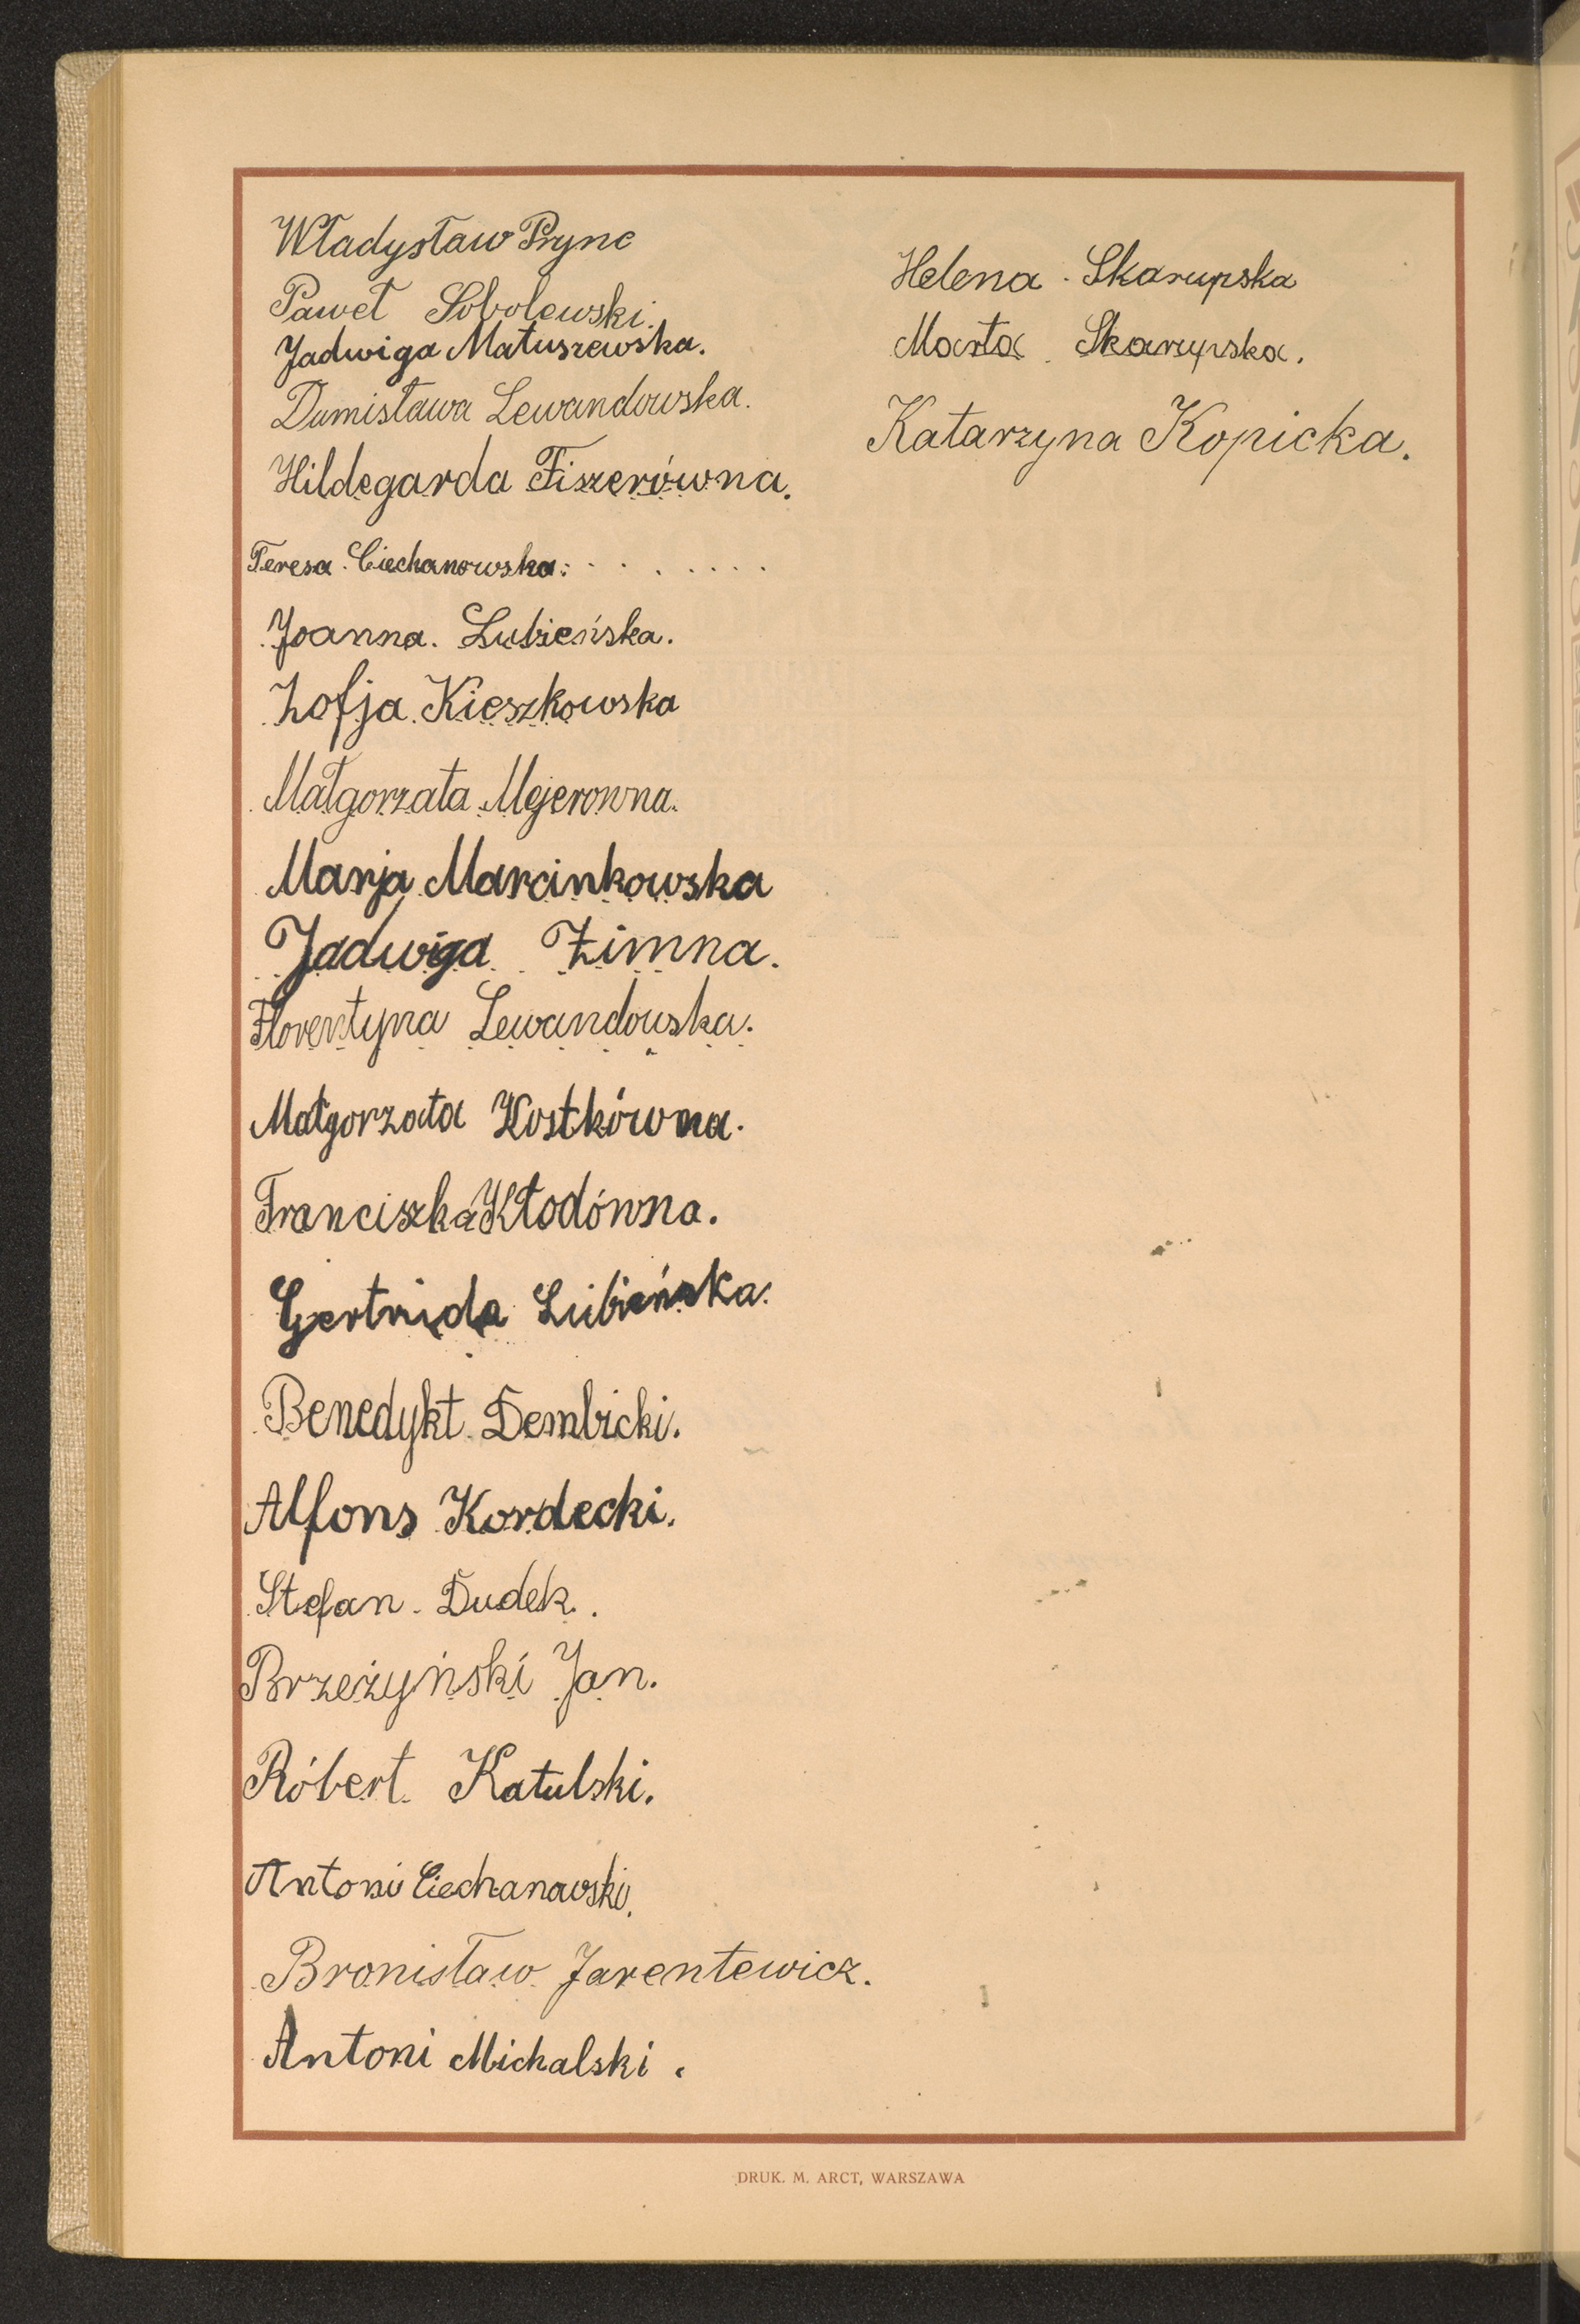 Władysław Prync
Paweł Sobolewski.
Jadwiga Matuszewska.
Dumisława Lewandowska.
Hildegarda Fiszerówna.
Teresa Ciechanowska:
Joanna. Lubieńska.
Zofja Kieszkowska
Małgorzata Mejerowna.
Marja Marcinkowska
Jadwiga Zimna.
Florentyna Lewandowska.
Małgorzata Kostkówna.
Franciszka Kłodówna.
Gertruda Lubieńska.
Benedykt Dembicki.
Alfons Kordecki.
Stefan Dudek.
Brzeżyński Jan.
Róbert Katulski.
Antoni Ciechanowski.
Bronisław Jarentewicz.
Antoni Michalski.
Helena Skarupska
Marta Skarupska.
Katarzyna Kopicka.
DRUK. M. ARCT, WARSZAWA